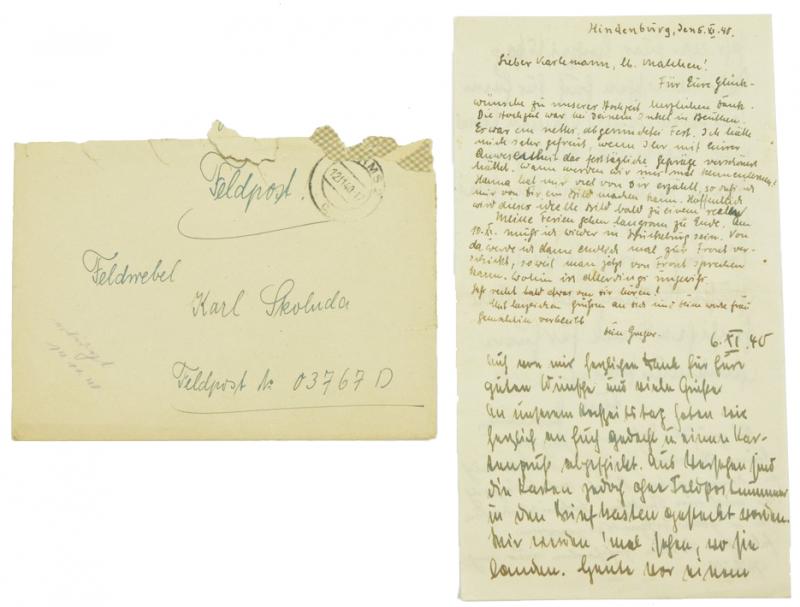 Feldpost.
Feldwebel
Karl Skoluda
Feldpost № 03767 D
Hindenburg, den 5. XI. 40.
Lieber Karlemann, lb. Malchen!
Für Eure Glück-
wünsche zu unserer Hochzeit herzlichen Dank.
Die Hochzeit war bei Deinem Onkel in Beuthen.
Es war ein nettes, abgerundetes Fest. Ich hätte
mich sehr gefreut, wenn Ihr mit Eurer
das festtägliche Gepräge verschönert
hättet. Wann werden wir uns mal kennenlernen?
Hanna hat mir viel von Dir erzählt, so daß ich
mir von Dir ein Bild machen kann. Hoffentlich
wird dieses ideelle Bild bald zu einem reellen
Meine Ferien gehen langsam zu Ende. Am
10. XI. muß ich wieder in sein. Von
da werde ich dann endlich mal zur Front ver-
schickt, soweit man jetzt von Front sprechen
kann. Wohin ist allerdings ungewiß.
Laßt recht bald etwas von Dir hören!
Mit herzlichen Grüßen an Dich und Deine werte Frau
Gemahlin verbleibt
Dein Gregor.
6. XI. 40
Auch von mir herzlichen Dank für Eure
guten Wünsche und viele Grüße
An unserem Hochzeitstag haben wir
herzlich an Euch gedacht u. einen Kar-
tengruß abgeschickt. Aus Versehen sind
die Karten jedoch ohne Feldpostnummer
in den Briefkasten gesteckt worden.
Wir werden 'mal sehen, wo sie
landen. Heute vor einem